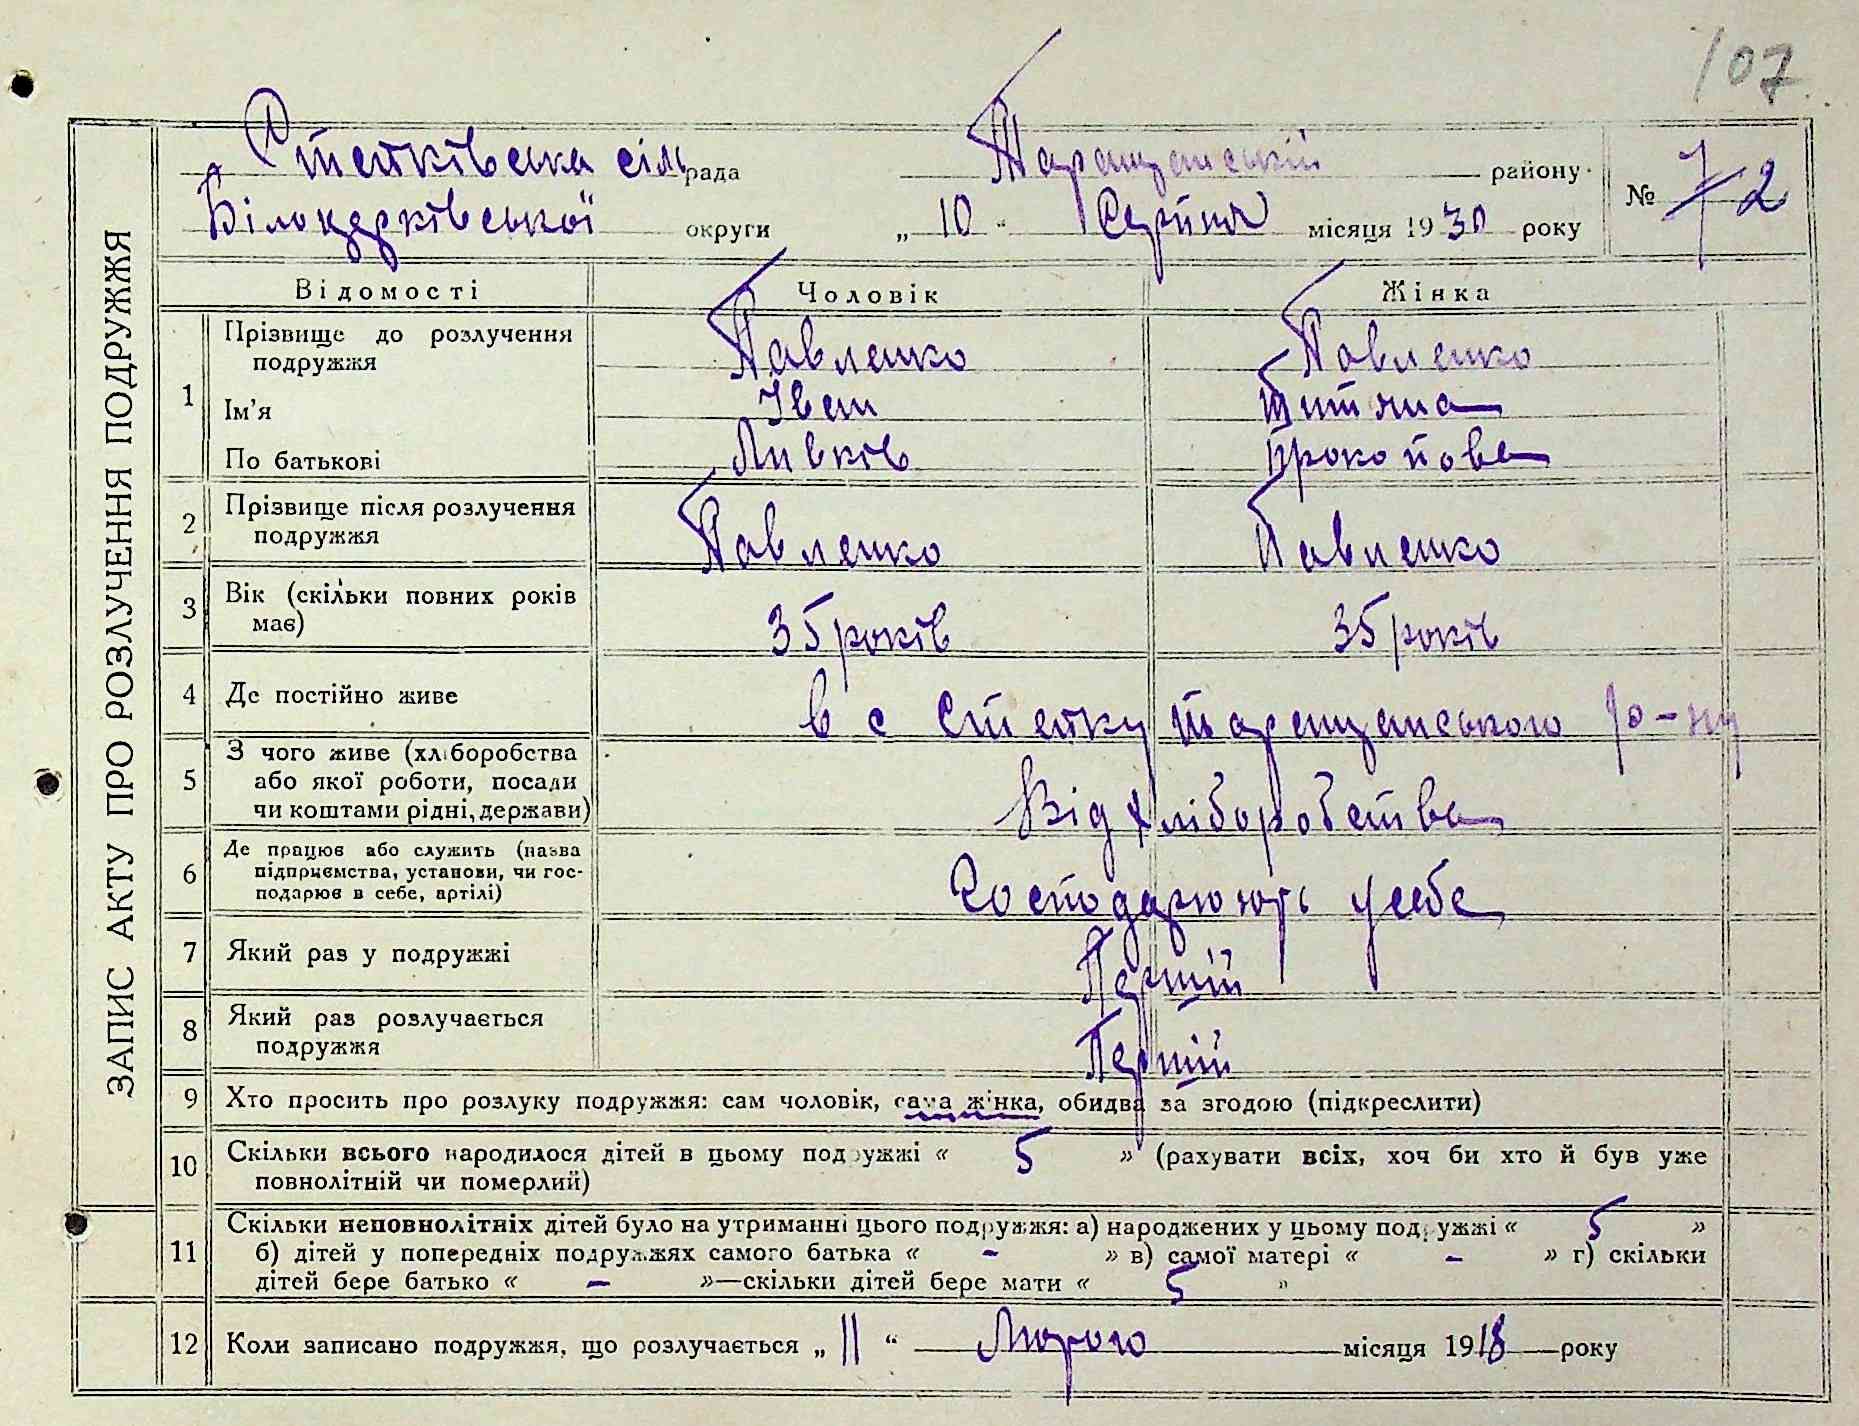 107
ЗАПИС АКТУ ПРО РОЗЛУЧЕННЯ ПОДРУЖЖЯ
Стенківська сільрада Таращанський району
Білоцерківської округи „ 10 " Серпня місяця 1930 року
№ 2
Відомості Чоловік Жінка
1 Прізвище до розлучення подружжя Павленко Павленко
Ім'я Іван Титяна
По батькові Ливків Прокопова
2 Прізвище після розлучення
подружжя Павленко Павленко
3 Вік (скільки повних років
має) 35 років 35 років
4 Де постійно живе в с Стенку Таращанського ро-ну
5 З чого живе (хліборобства
або якої роботи, посади
чи коштами рідні, держави) Від хліборобства
6 Де працює або служить (назва
підприємства, установи, чи гос-
подарює в себе, артілі) Господарюють у себе
7 Який раз у подружжі Перший
8 Який раз розлучається
подружжя Перший
9 Хто просить про розлуку подружжя: сам чоловік, сама жінка, обидва за згодою (підкреслити)
10 Скільки всього народилося дітей в цьому подружжі « 5 » (рахувати всіх, хоч би хто й був уже
повнолітній чи померлий)
11 Скільки неповнолітніх дітей було на утриманні цього подружжя: а) народжених у цьому подружжі « 5 »
б) дітей у попередніх подружжях самого батька « - » в) самої матері « - » г) скільки
дітей бере батько « - »—скільки дітей бере мати « 5 »
12 Коли записано подружжя, що розлучається „ 11 “ Лютого місяця 1918 року